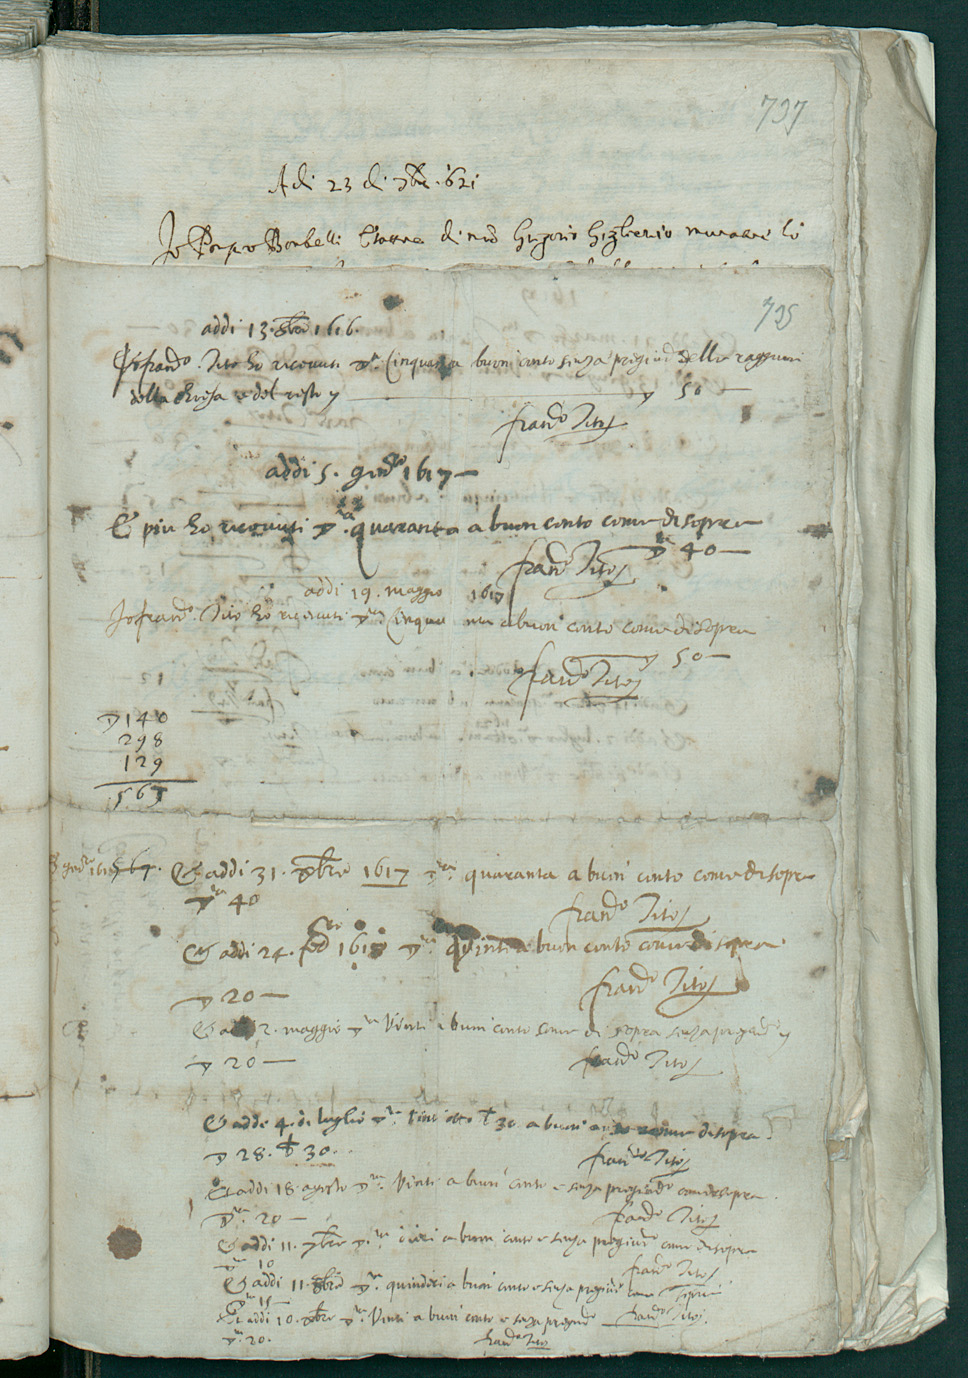 737
Adi 23 di 7bre 1621
Io Borbelli di mro Gregorio muratore
735
addi 13. 8bre 1616.
Io franco. Tito ho ricevuti Dti. Cinquanta a buon conto senza pregiuo delle raggioni
della chiesa e del resto D 50 —
franco Tito
addi 5. gennro 1617 —
E piu ho ricevuti Dti. quaranta a buon conto come di sopra
D 40 —
franco Tito
addi 19. maggio 1617
Io franco. Tito ho ricevuti Dti. Cinquanta a buon conto come di sopra
D 50 —
franco Tito
D 140
298
129
567
567. E addi 31. Xbre 1617 Dti. quaranta a buon conto come di sopra
Dti 40
franco Tito
E addi 24. 1618 Dti. a buon conto come di sopra.
franco Tito
D 20 —
E addi 2. maggio Dti Vinti a buon conto come di sopra senza pregiudo
D 20 — franco Tito
E addi 4. di luglio Dti. vint'otto 30 a buon conto come di sopra.
D 28. 30. franco Tito
E addi 18. agosto Dti. Vinti a buon conto e senza pregiudo come di sopra.
Dti. 20 — franco Tito
E addi 11. 7bre Dti. dieci a buon conto e senza pregiudo come di sopra
Dti 10 franco Tito
E addi 11. 8bre Dti quindeci a buon conto e senza pregiudo come sopra
Dti 15
E addi 10. Xbre Dti. Vinti a buon conto e senza pregiudo franco Tito
Dti 20. franco Tito